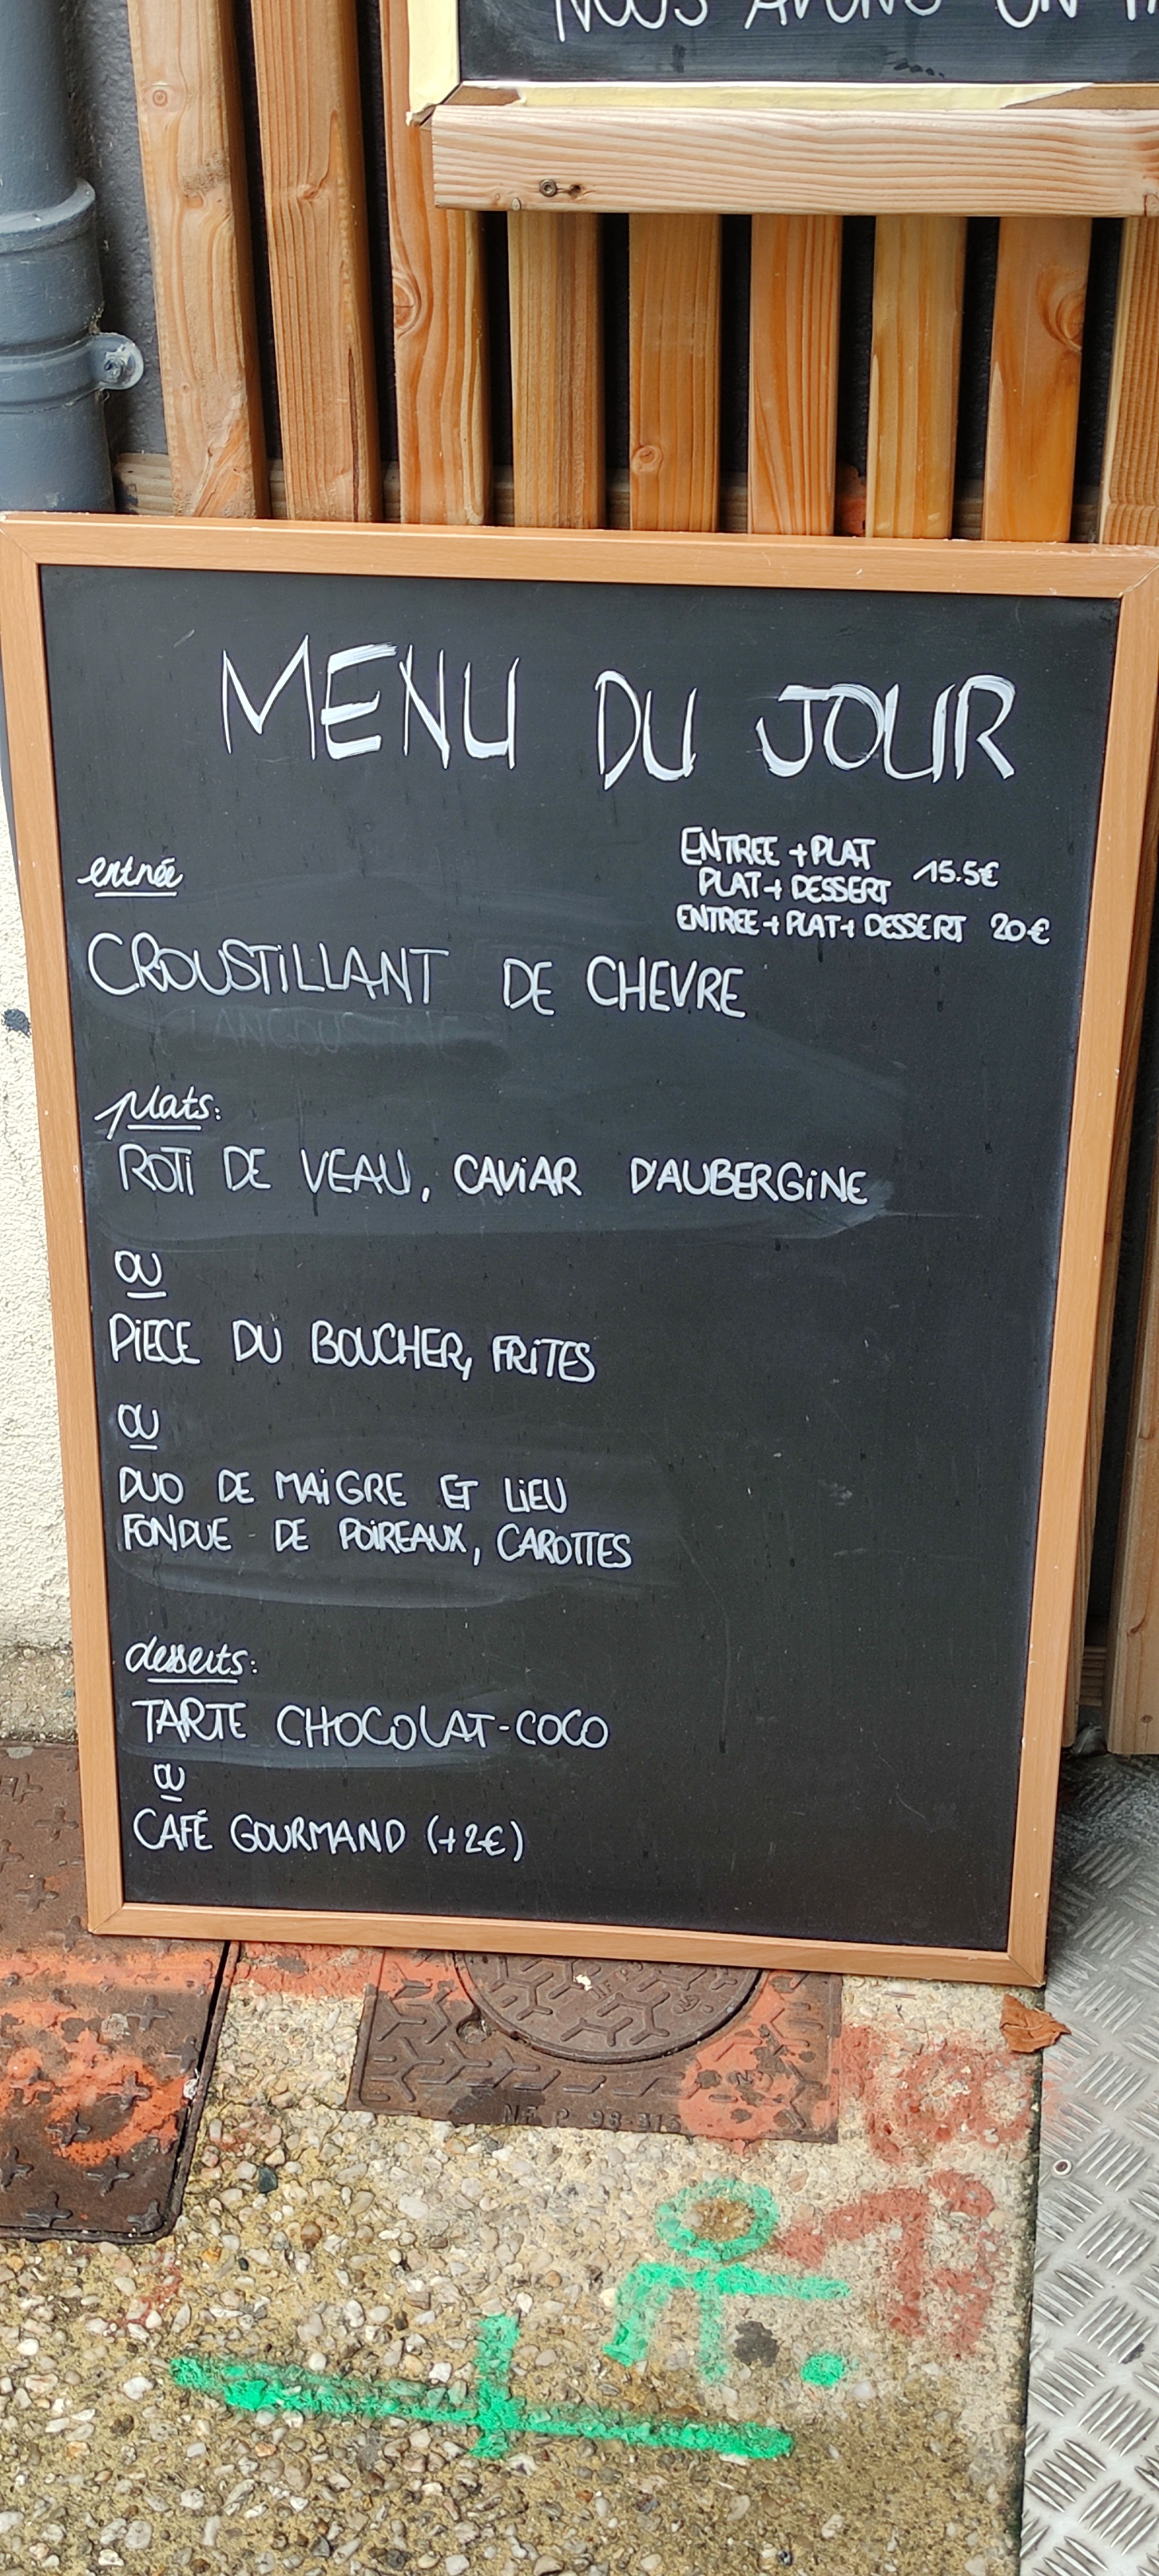 NOUS AVONS UN
MENU DU JOUR
entrée
ENTREE + PLAT
PLAT + DESSERT
15.5€
ENTREE + PLAT + DESSERT 20€
CROUSTiLLANT DE CHEVRE
plats:
ROTi DE VEAU, CAViAR D'AUBERGiNE
OU
PiECE DU BOUCHER, FRiTES
OU
DUO DE MAiGRE ET LiEU
FONDUE DE POiREAUX, CAROTTES
desserts:
TARTE CHOCOLAT-COCO
OU
CAFÉ GOURMAND (+2€)
NF P 98-313